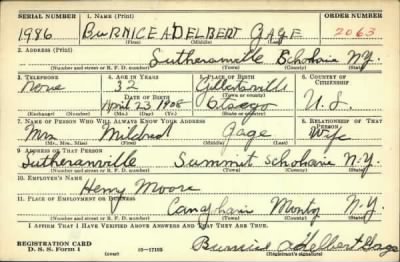 SERIAL NUMBER 1. NAME (Print) ORDER NUMBER
1986 BURNICE ADELBERT GAGE 2063
(First) (Middle) (Last)
2. ADDRESS (Print)
Sutheranville Schoharie N.Y.
(Number and street or R. F. D. number) (Town) (County) (State)
3. TELEPHONE 4. AGE IN YEARS 5. PLACE OF BIRTH 6. COUNTRY OF CITIZENSHIP
None 32 Gilbertsville
DATE OF BIRTH (Town or county)
April 23 1908 Otsego U.S.
(Exchange) (Number) (Mo.) (Day) (Yr.) (State or country)
7. NAME OF PERSON WHO WILL ALWAYS KNOW YOUR ADDRESS 8. RELATIONSHIP OF THAT PERSON
Mrs Mildred Gage Wife
(Mr., Mrs., Miss) (First) (Middle) (Last)
9. ADDRESS OF THAT PERSON
Sutheranville Summit Schoharie N.Y.
(Number and street or R. F. D. number) (Town) (County) (State)
10. EMPLOYER'S NAME
Henry Moore
11. PLACE OF EMPLOYMENT OR BUSINESS
N.Y.
(Number and street or R. F. D. number) (Town) (County) (State)
I AFFIRM THAT I HAVE VERIFIED ABOVE ANSWERS AND THAT THEY ARE TRUE.
REGISTRATION CARD
D. S. S. Form 1 16—17105 Burnice Adelbert Gage
(Registrant's signature)